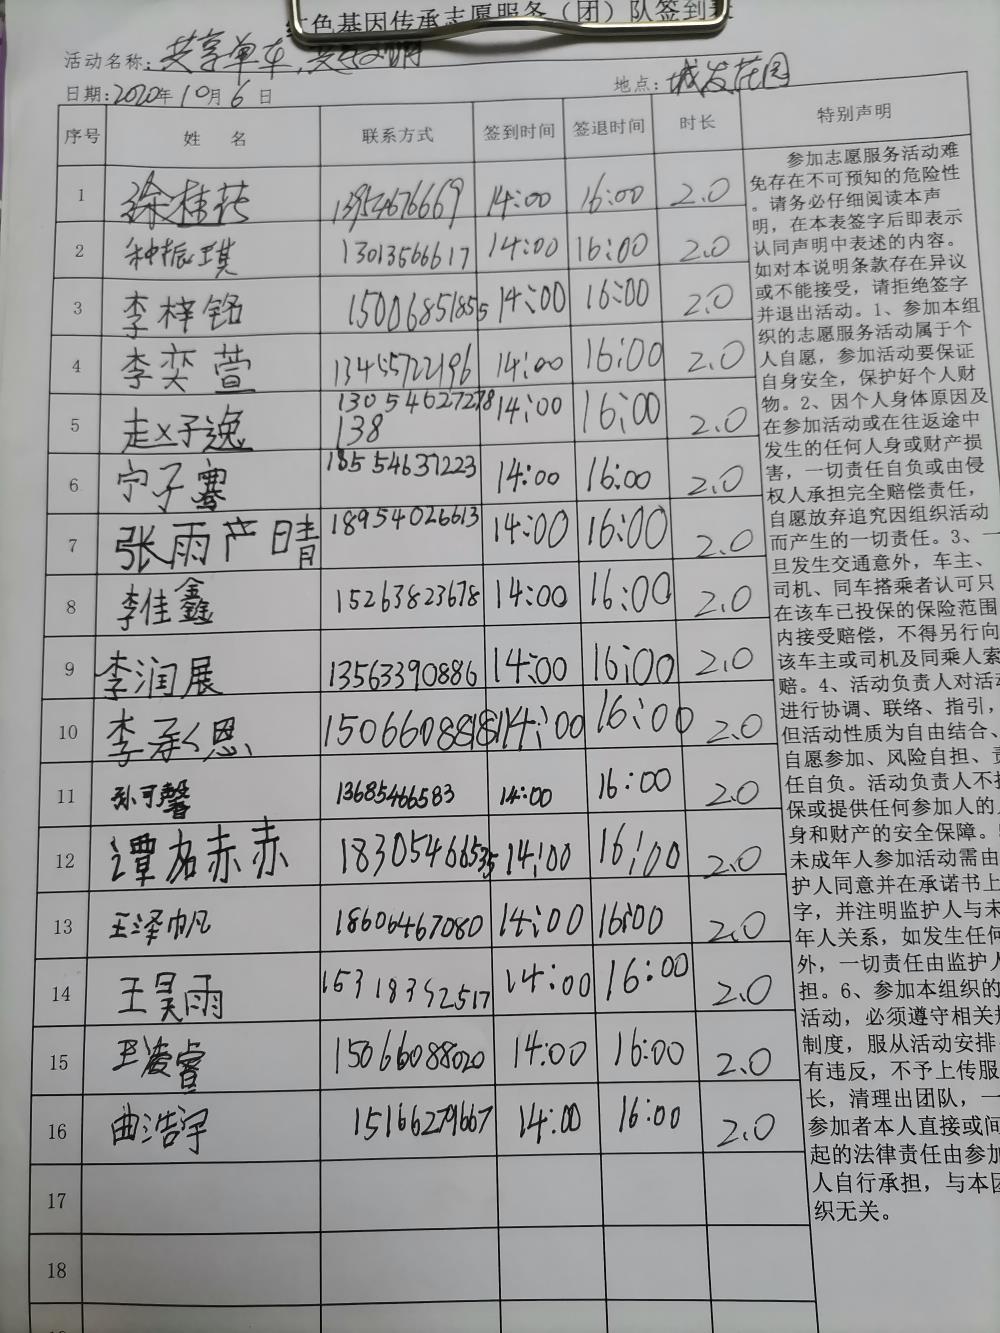 红色基因传承志愿服务（团）队签到表
活动名称：共享单车，
日期：2020年10月6日 地点：城发花园
序号 姓 名 联系方式 签到时间 签退时间 时长 特别声明
1 徐桂花 13954676669 14:00 16:00 2.0
2 种振琪 13013566617 14:00 16:00 2.0
3 李梓铭 15006851855 14:00 16:00 2.0
4 李奕萱 13455722196 14:00 16:00 2.0
5 赵子逸 13054627278 138 14:00 16:00 2.0
6 宁子骞 18554637223 14:00 16:00 2.0
7 张雨产晴 18954026613 14:00 16:00 2.0
8 李佳鑫 15263823678 14:00 16:00 2.0
9 李润展 13563390886 14:00 16:00 2.0
10 李承恩 15066088181 14:00 16:00 2.0
11 孙可馨 13685466583 14:00 16:00 2.0
12 谭茗赫 18305466535 14:00 16:00 2.0
13 王泽帆 18606467080 14:00 16:00 2.0
14 王昊雨 15318352517 14:00 16:00 2.0
15 王凌睿 15066088020 14:00 16:00 2.0
16 曲浩宇 15166279667 14:00 16:00 2.0
17
18
参加志愿服务活动难
免存在不可预知的危险性
。请务必仔细阅读本声
明，在本表签字后即表示
认同声明中表述的内容。
如对本说明条款存在异议
或不能接受，请拒绝签字
并退出活动。1、参加本组
织的志愿服务活动属于个
人自愿，参加活动要保证
自身安全，保护好个人财
物。2、因个人身体原因及
在参加活动或在往返途中
发生的任何人身或财产损
害，一切责任自负或由侵
权人承担完全赔偿责任，
自愿放弃追究因组织活动
而产生的一切责任。3、一
旦发生交通意外，车主、
司机、同车搭乘者认可只
在该车已投保的保险范围
内接受赔偿，不得另行向
该车主或司机及同乘人索
赔。4、活动负责人对活动
进行协调、联络、指引，
但活动性质为自由结合、
自愿参加、风险自担、责
任自负。活动负责人不担
保或提供任何参加人的人
身和财产的安全保障。
未成年人参加活动需由
护人同意并在承诺书上
字，并注明监护人与未
年人关系，如发生任何
外，一切责任由监护人
担。6、参加本组织的
活动，必须遵守相关规
制度，服从活动安排
有违反，不予上传服
长，清理出团队，一
参加者本人直接或间
起的法律责任由参加
人自行承担，与本团
织无关。